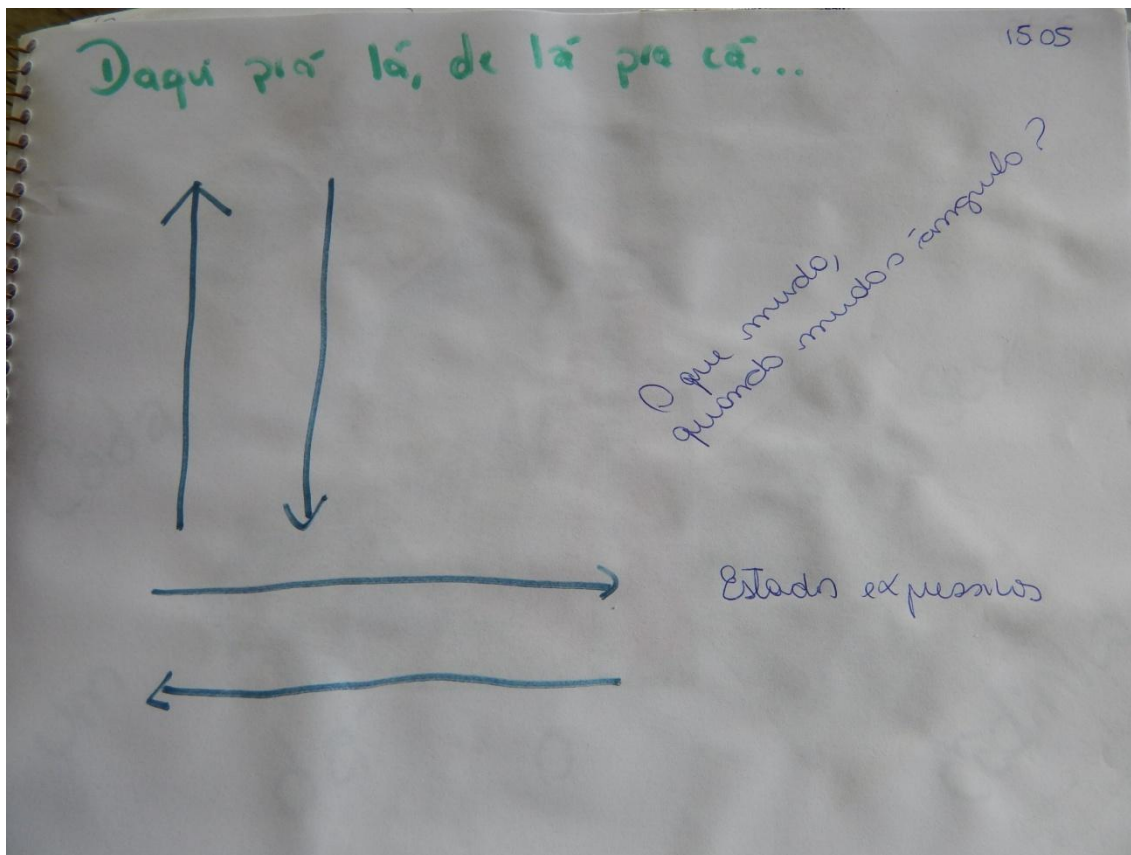 Daqui prá lá, de lá pra cá...
15 05
O que muda,
quando mudo o ângulo?
Estados expressivos